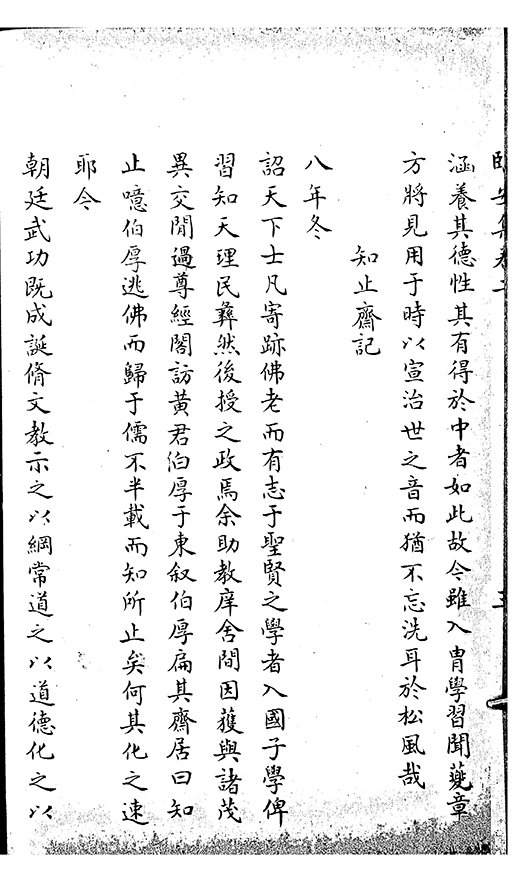 臥安集卷二
涵養其德性其有得於中者如此故今雖入冑學習聞夔章
方將見用于時以宣治世之音而猶不忘洗耳於松風哉
知止齋記
八年冬
詔天下士凡寄跡佛老而有志于聖賢之學者入國子學俾
習知天理民彝然後授之政焉余助教庠舍間因獲與諸茂
異交閒過尊經閣訪黃君伯厚于東叙伯厚扁其齋居曰知
止噫伯厚逃佛而歸于儒不半載而知所止矣何其化之速
耶今
朝廷武功既成誕脩文教示之以綱常道之以道德化之以